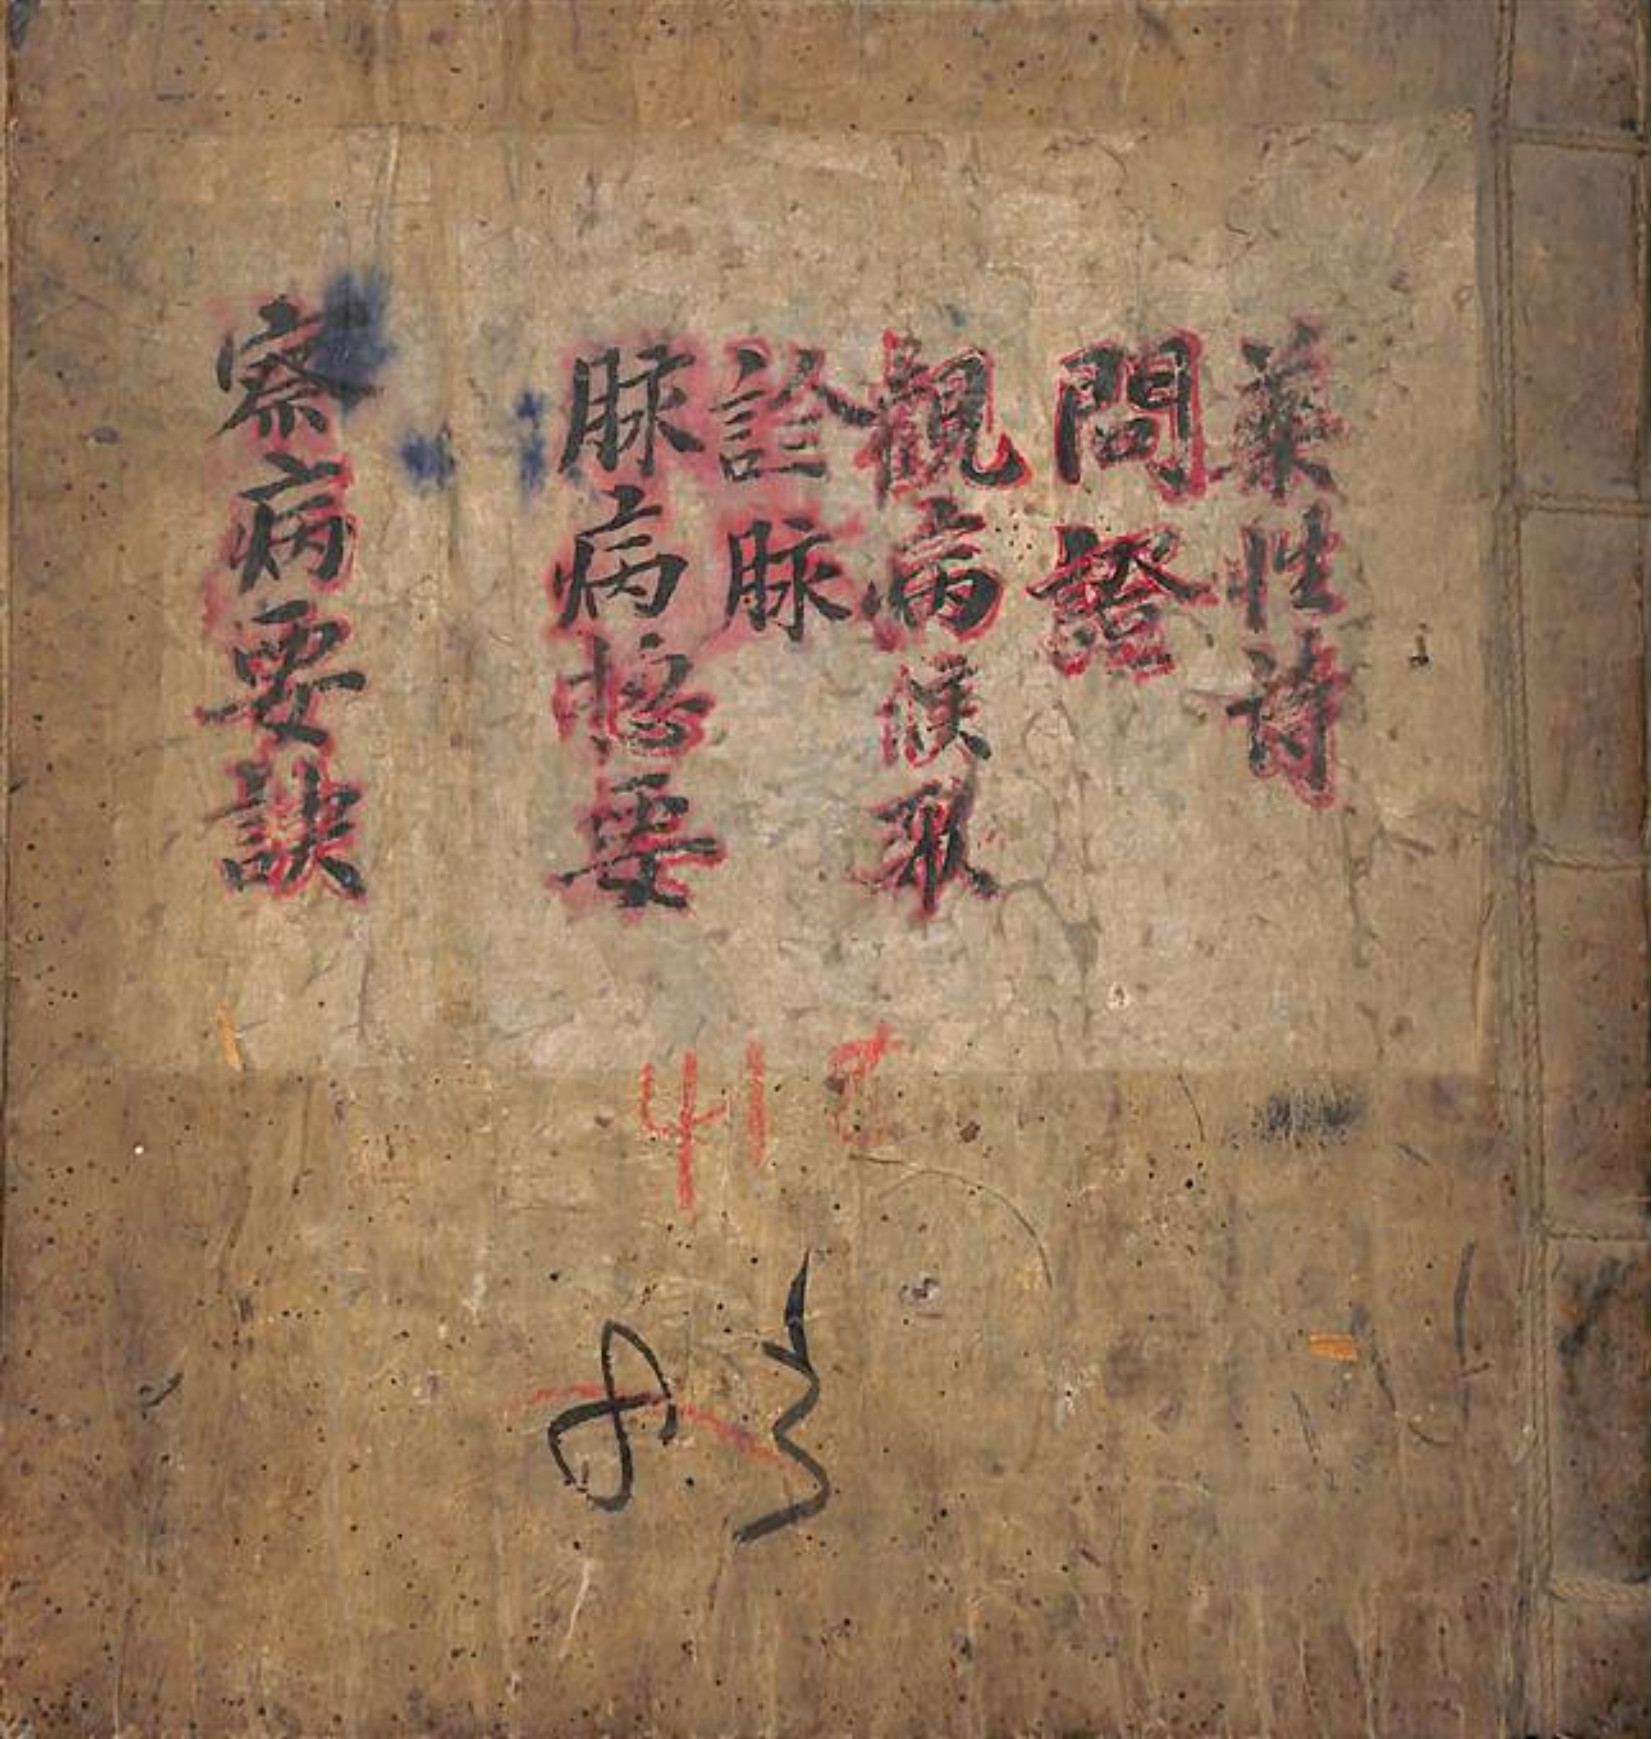 藥性詩
問證
觀病候
診脉
脉病揔要
察病要訣
41